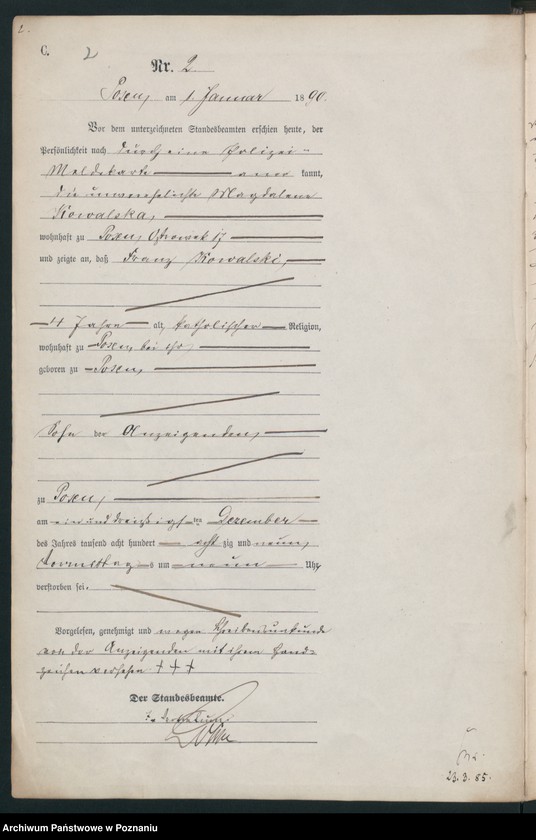 2.
C. 2
Nr. 2
Posen, am 1. Januar 1890.
Vor dem unterzeichneten Standesbeamten erschien heute, der
Persönlichkeit nach durch eine Polizei-
Meldekarte anerkannt,
die unverehelichte Magdalene
Kowalska,
wohnhaft zu Posen, Ostrowek 17
und zeigte an, daß Franz Kowalski,
4 Jahre alt, katholischer Religion,
wohnhaft zu Posen bei ihr,
geboren zu Posen,
Sohn der Anzeigenden,
zu Posen,
am einunddreißigsten Dezember
des Jahres tausend acht hundert achtzig und neun,
Vormittags um neun Uhr
verstorben sei.
Vorgelesen, genehmigt und wegen Schreibensunkunde
von der Anzeigenden mit ihrem Hand-
zeichen versehen + + +
Der Standesbeamte.
In Vertretung
23.3.85.
Archiwum Państwowe w Poznaniu